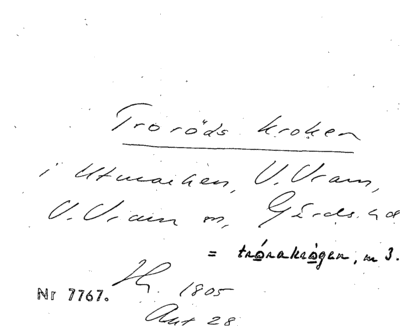 Troröds kroken
i Utmarken, V. Vram,
V. Vram sn, Gärds hd
= trórakrògen, m 3.
1805
Nr 7767.
Akt 28